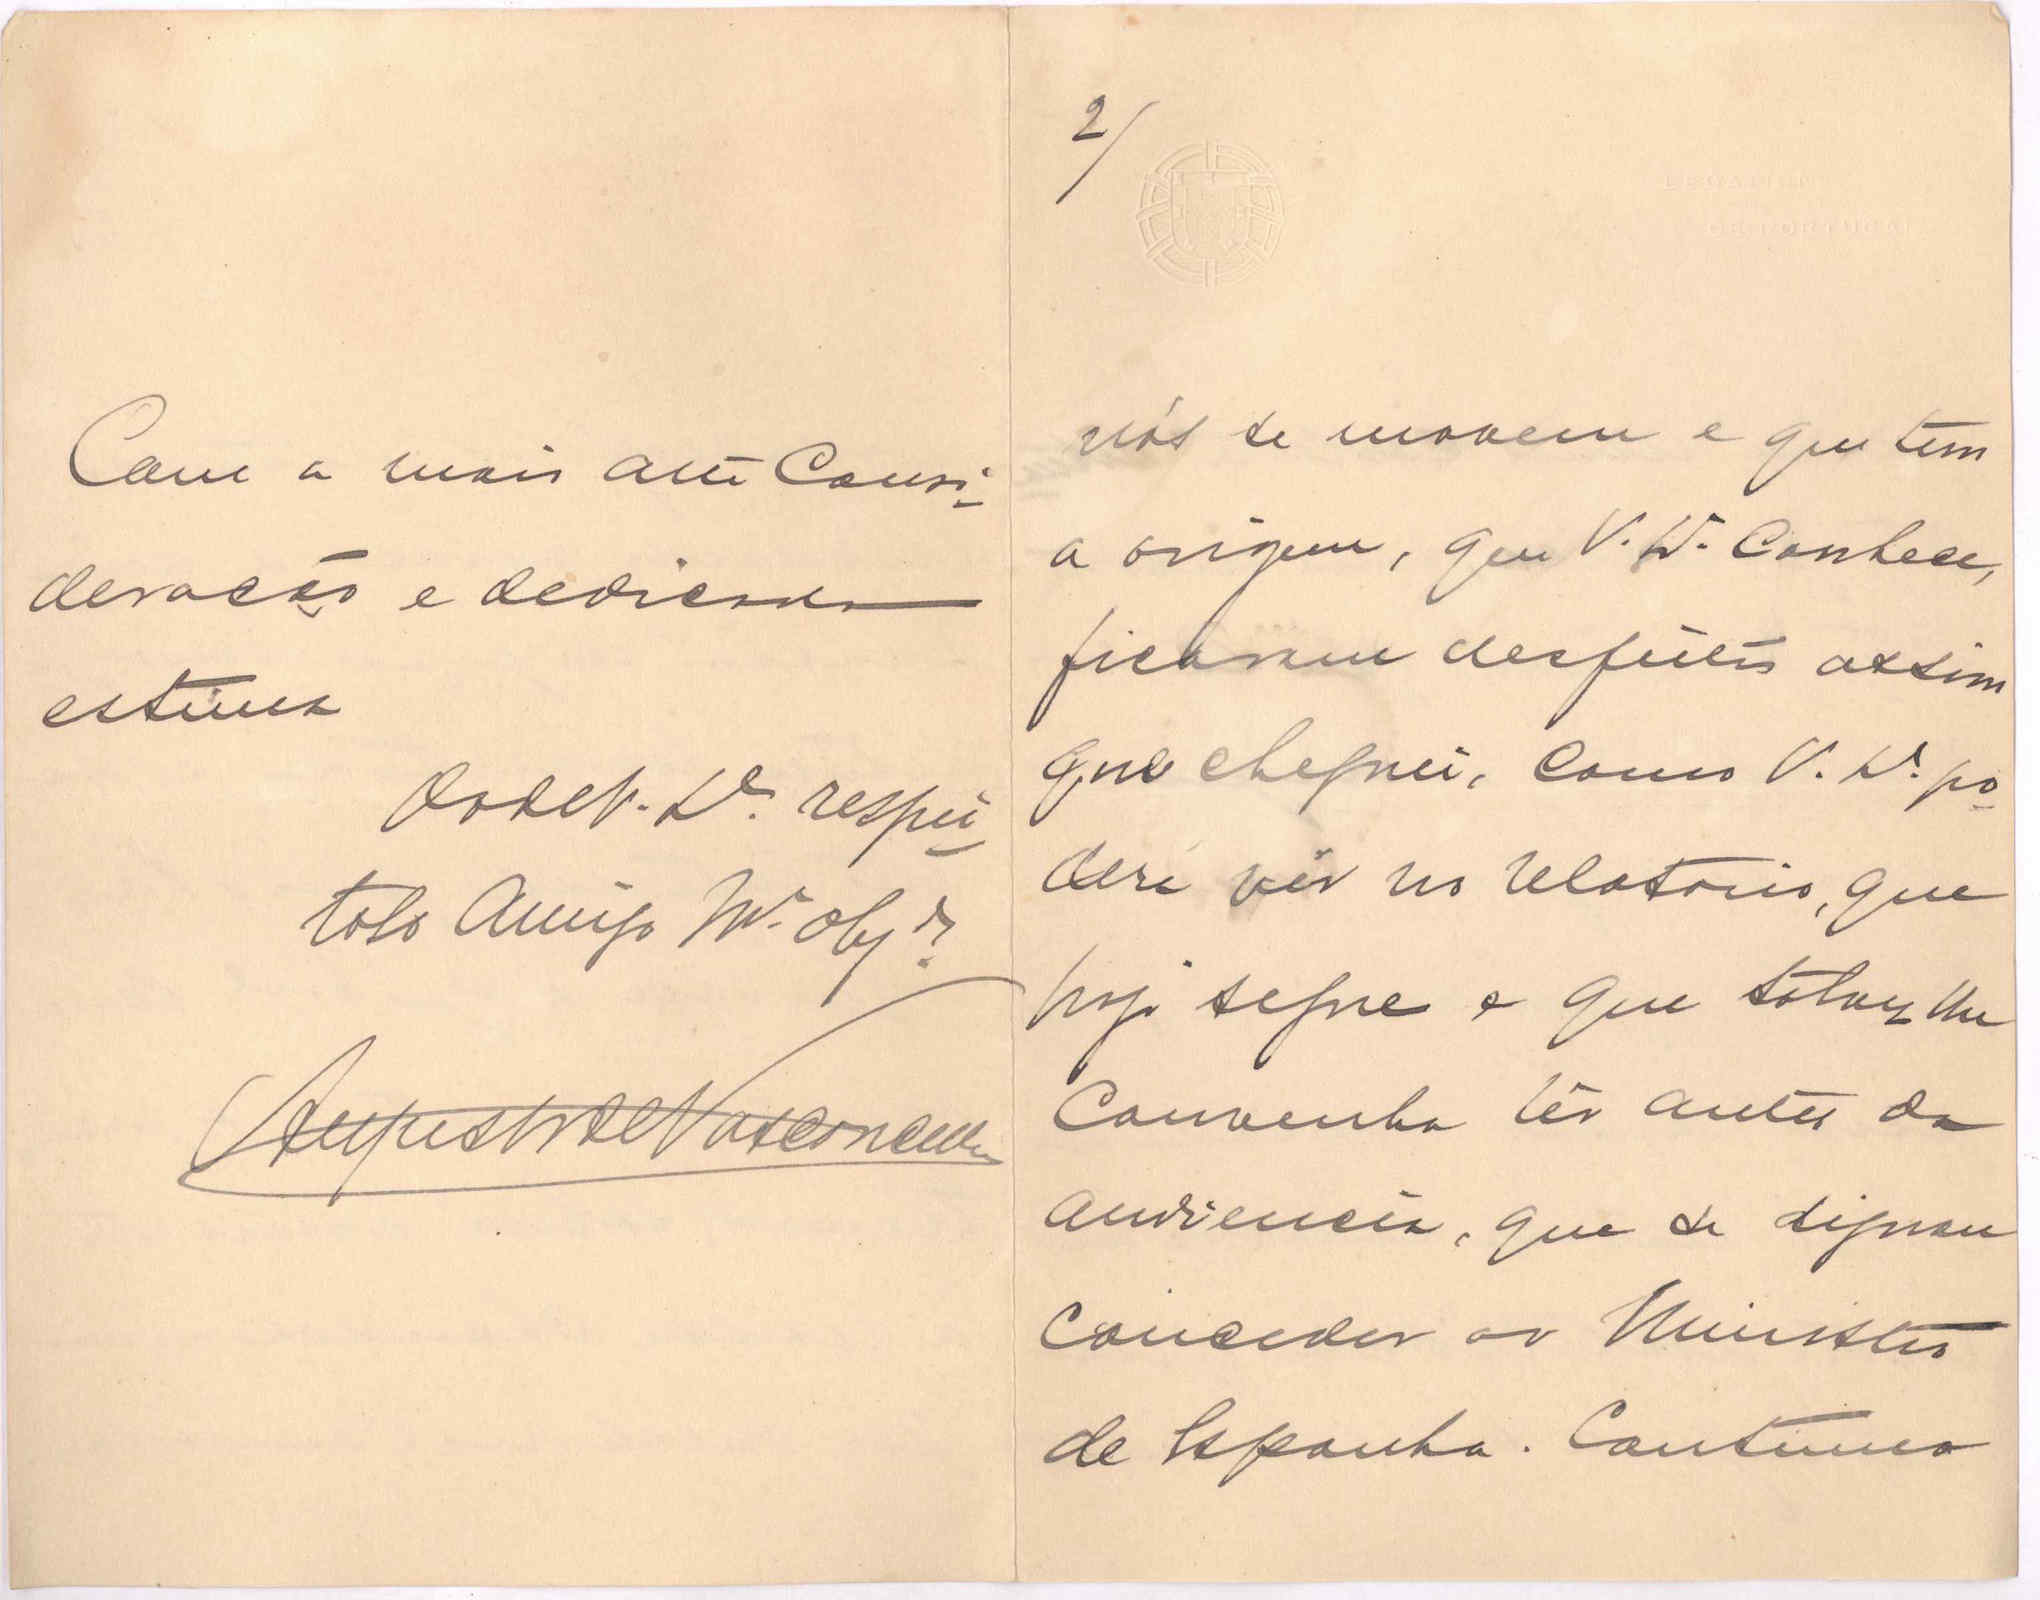 Com a mais atta consi-
deração e dedicada
estima
De V. Exª. respei-
toso Amigo Mto. obgdo.
Augusto de Vasconcellos
2/
LEGATION
DE PORTUGAL
nós se movem e que tem
a origem, que V. Exª. conhece,
ficaram desfeitos assim
que cheguei, como V. Exª. po-
derá vêr no relatorio, que
hoje segue e que talvez lhe
convenha lêr antes da
audiencia, que se dignou
conceder ao Ministro
de Espanha. Continuo